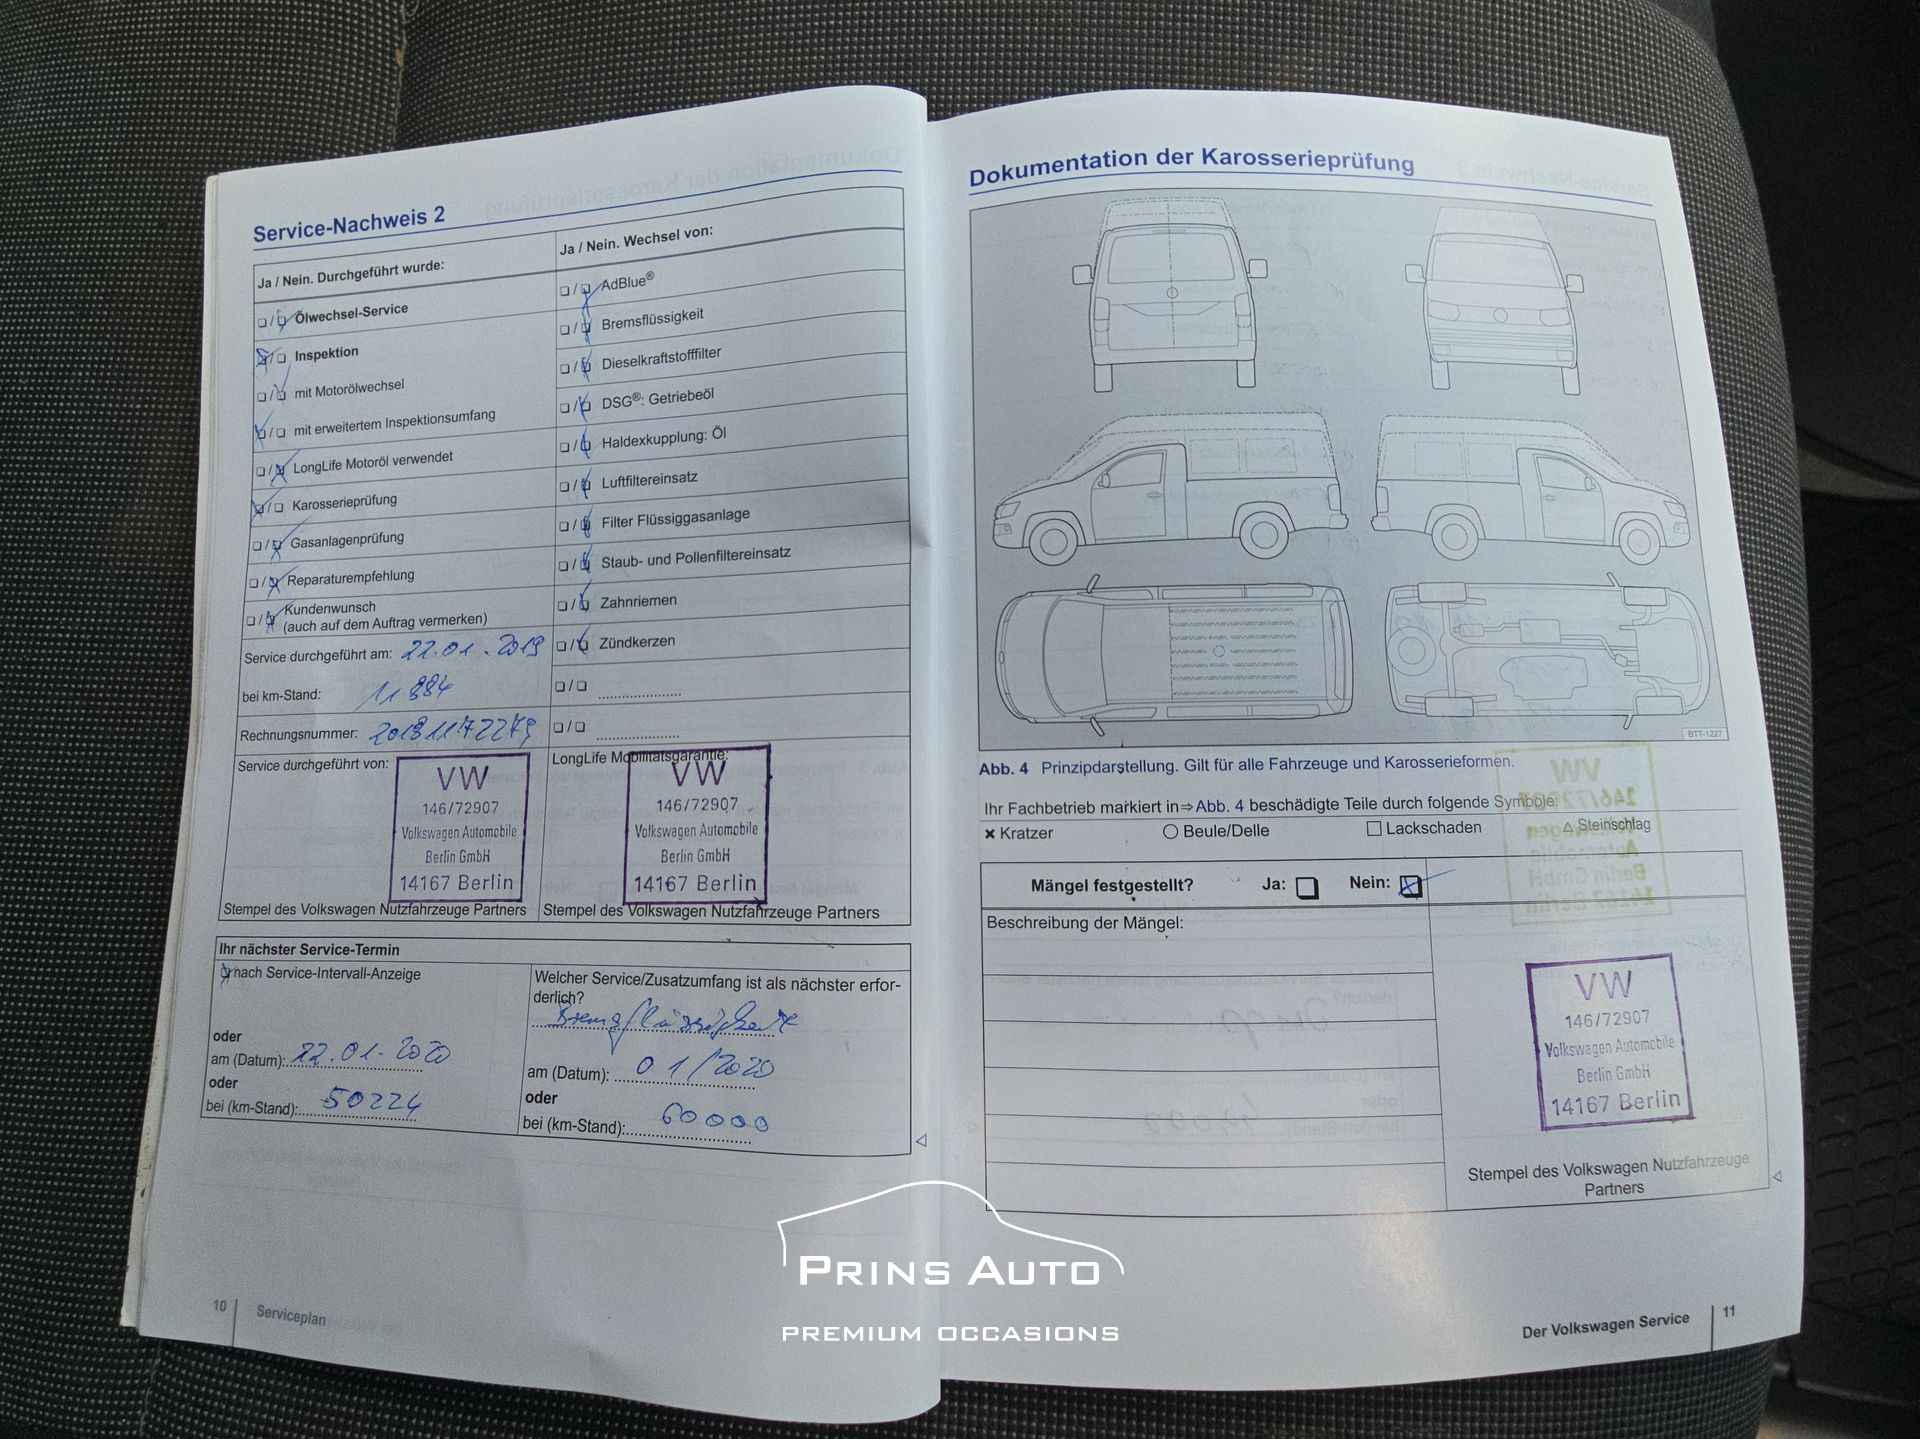 Service-Nachweis 2
Ja / Nein. Durchgeführt wurde:
Ölwechsel-Service
Inspektion
mit Motorölwechsel
mit erweitertem Inspektionsumfang
LongLife Motoröl verwendet
Karosserieprüfung
Gasanlagenprüfung
Reparaturempfehlung
Kundenwunsch
(auch auf dem Auftrag vermerken)
Service durchgeführt am: 22.01.2019
bei km-Stand: 11884
Rechnungsnummer:
Service durchgeführt von:
VW
146/72907
Volkswagen Automobile
Berlin GmbH
14167 Berlin
Stempel des Volkswagen Nutzfahrzeuge Partners
Ja / Nein. Wechsel von:
AdBlue®
Bremsflüssigkeit
Dieselkraftstofffilter
DSG®: Getriebeöl
Haldexkupplung: Öl
Luftfiltereinsatz
Filter Flüssiggasanlage
Staub- und Pollenfiltereinsatz
Zahnriemen
Zündkerzen
LongLife Mobilitätsgarantie:
VW
146/72907
Volkswagen Automobile
Berlin GmbH
14167 Berlin
Stempel des Volkswagen Nutzfahrzeuge Partners
Ihr nächster Service-Termin
nach Service-Intervall-Anzeige
oder
am (Datum): 22.01.2020
oder
bei (km-Stand): 50224
Welcher Service/Zusatzumfang ist als nächster erfor-
derlich?
Bremsflüssigkeit
am (Datum): 01/2020
oder
bei (km-Stand): 60000
10
Serviceplan
Dokumentation der Karosserieprüfung
BTT-1227
Abb. 4 Prinzipdarstellung. Gilt für alle Fahrzeuge und Karosserieformen.
Ihr Fachbetrieb markiert in⇒Abb. 4 beschädigte Teile durch folgende Symbole:
Kratzer Beule/Delle Lackschaden Steinschlag
Mängel festgestellt? Ja: Nein:
Beschreibung der Mängel:
VW
146/72907
Volkswagen Automobile
Berlin GmbH
14167 Berlin
Stempel des Volkswagen Nutzfahrzeuge
Partners
Der Volkswagen Service 11
PRINS AUTO
PREMIUM OCCASIONS